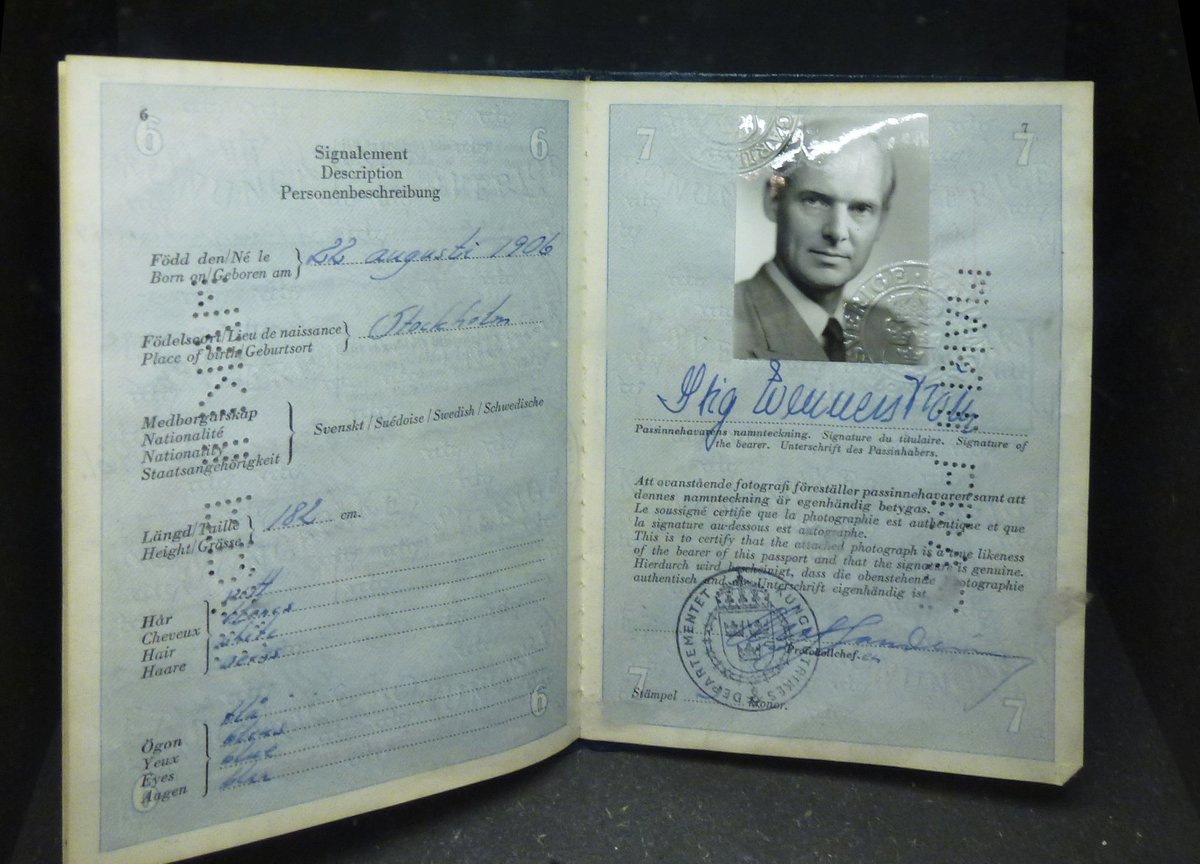 6
6
6
Signalement
Description
Personenbeschreibung
Född den/Né le
Born on/Geboren am
22 augusti 1906
Födelseort/Lieu de naissance
Place of birth/Geburtsort
Stockholm
Medborgarskap
Nationalité
Nationality
Staatsangehörigkeit
Svenskt / Suédoise / Swedish / Schwedische
Längd/Taille
Height/Grösse
182 cm.
Hår
Cheveux
Hair
Haare
Ögon blå
Yeux bleus
Eyes blue
Augen blau
6
7
7
7
Stig Wennerström
Passinnehavarens namnteckning. Signature du titulaire. Signature of
the bearer. Unterschrift des Passinhabers.
Att ovanstående fotografi föreställer passinnehavaren samt att
dennes namnteckning är egenhändig betygas.
Le soussigné certifie que la photographie est authentique et que
la signature au-dessous est autographe.
This is to certify that the attached photograph is a true likeness
of the bearer of this passport and that the signature is genuine.
Hierdurch wird bescheinigt, dass die obenstehende Photographie
authentisch und die Unterschrift eigenhändig ist
Protokollchef.
Stämpel Kronor.
7
7